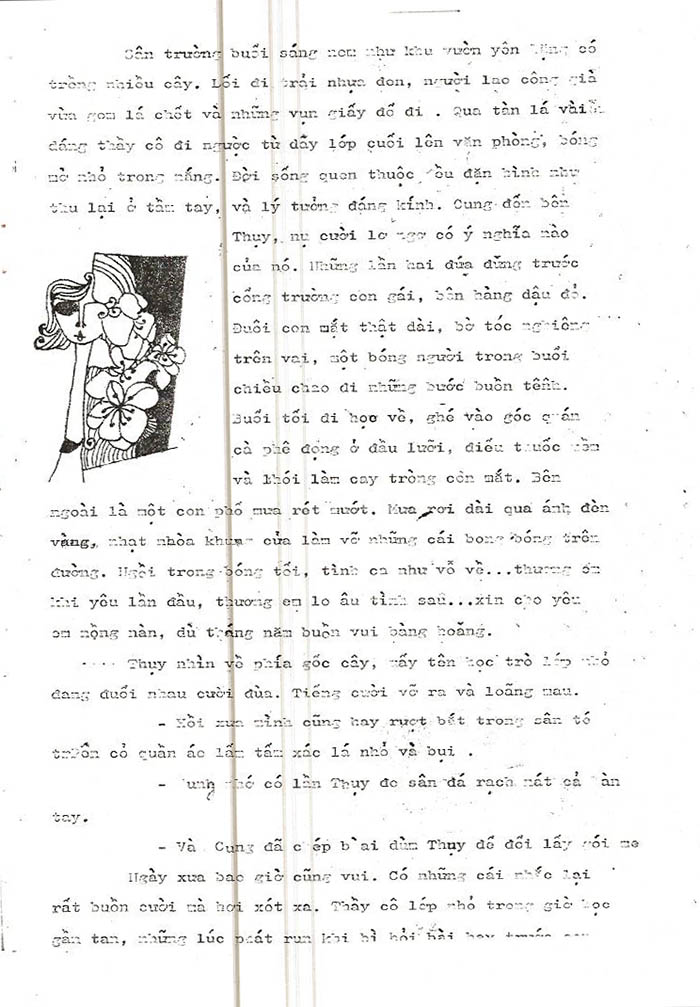 Sân trường buổi sáng nom như khu vườn yên lặng có
trồng nhiều cây. Lối đi trải nhựa đen, người lao công già
vừa gom lá chết và những vụn giấy đổ đi . Qua tàn lá vài
dáng thầy cô đi ngược từ dãy lớp cuối lên văn phòng, bóng
mờ nhỏ trong nắng. Đời sống quen thuộc đều đặn hình như
thu lại ở tầm tay, và lý tưởng đáng kính. Cung đến bên
Thụy, nụ cười lơ ngơ có ý nghĩa nào
của nó. Những lần hai đứa đứng trước
cổng trường con gái, bên hàng dậu đỏ.
Đuôi con mắt thật dài, bờ tóc nghiêng
trên vai, một bóng người trong buổi
chiều chao đi những bước buồn tênh.
Buổi tối đi học về, ghé vào góc quán
cà phê đọng ở đầu lưỡi, điếu thuốc
và khói làm cay tròng con mắt. Bên
ngoài là một con phố mưa rét mướt. Mưa rơi dài qua ánh đèn
vàng, nhạt nhòa khung cửa làm vỡ những cái bong bóng trên
đường. Ngồi trong bóng tối, tình ca như vỗ về...thương em
khi yêu lần đầu, thương em lo âu tình sau...xin cho yêu
em nồng nàn, dù tháng năm buồn vui bàng hoàng.
.... Thụy nhìn về phía gốc cây, mấy tên học trò lớp nhỏ
đang đuổi nhau cười đùa. Tiếng cười vỡ ra và loãng mau.
- Hồi xưa mình cũng hay rượt bắt trong sân té
cỏ quần áo lấm tấm xác lá nhỏ và bụi .
- Cung nhớ có lần Thụy đo sân đá rạch nát cả bàn
tay.
- Và Cung đã chép bài dùm Thụy để đổi lấy gói me
Ngày xưa bao giờ cũng vui. Có những cái nhắc lại
rất buồn cười mà hơi xót xa. Thầy cô lớp nhỏ trong giờ học
gần tan, những lúc phát run khi bị hỏi bài hay trước